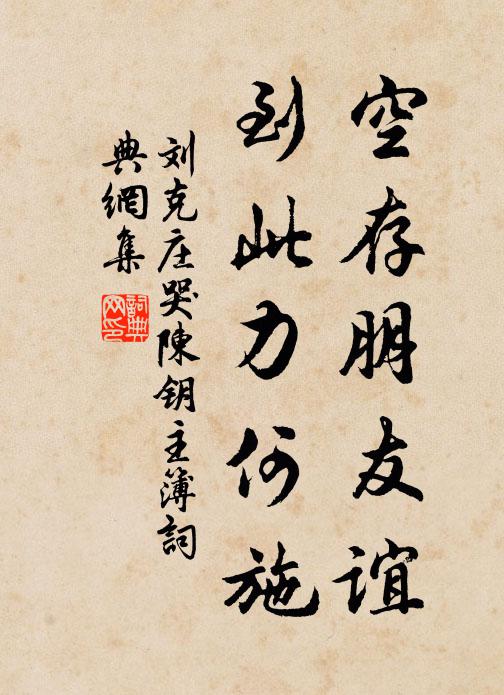 空存朋友谊
到此力何施
刘克庄哭陳钥主簿詞
典網集
詞典网印